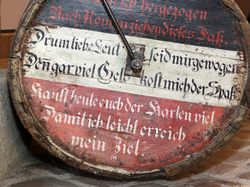 hergezogen
Nach Reim ziehen dieses Faß.
Drum liebe Leut seid mir gewogen
Den gar viel Gelt kost mich der Spaß
Kauft heute euch der Karten viel
Damit ich leicht erreich
mein Ziel